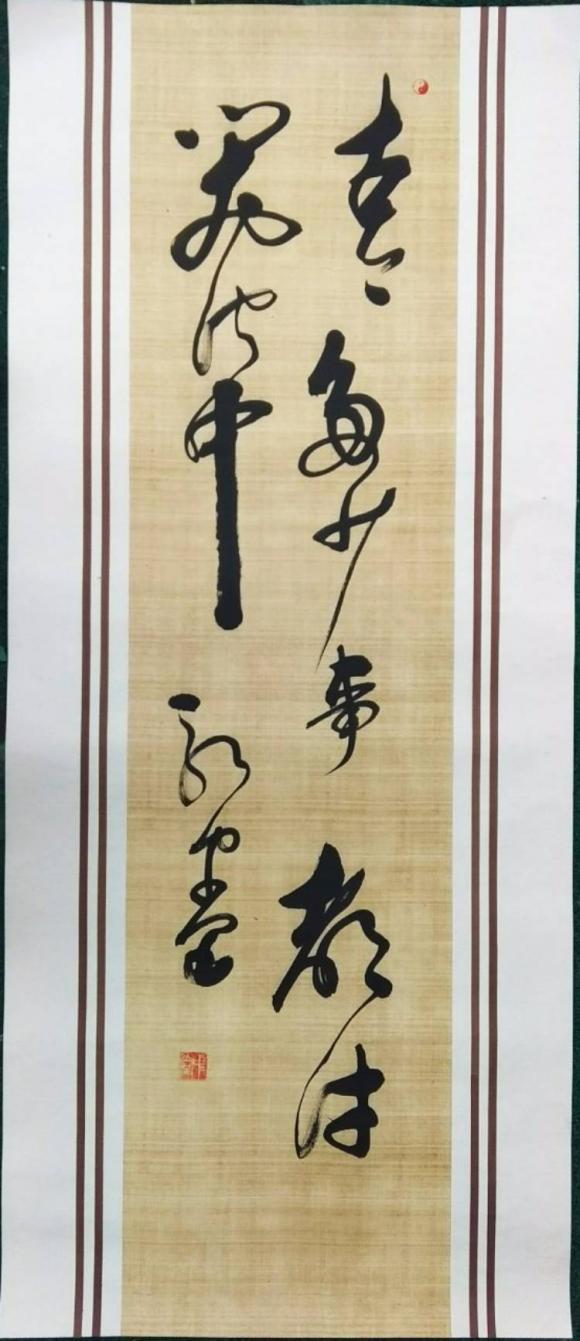 古今多少事都付
笑谈中